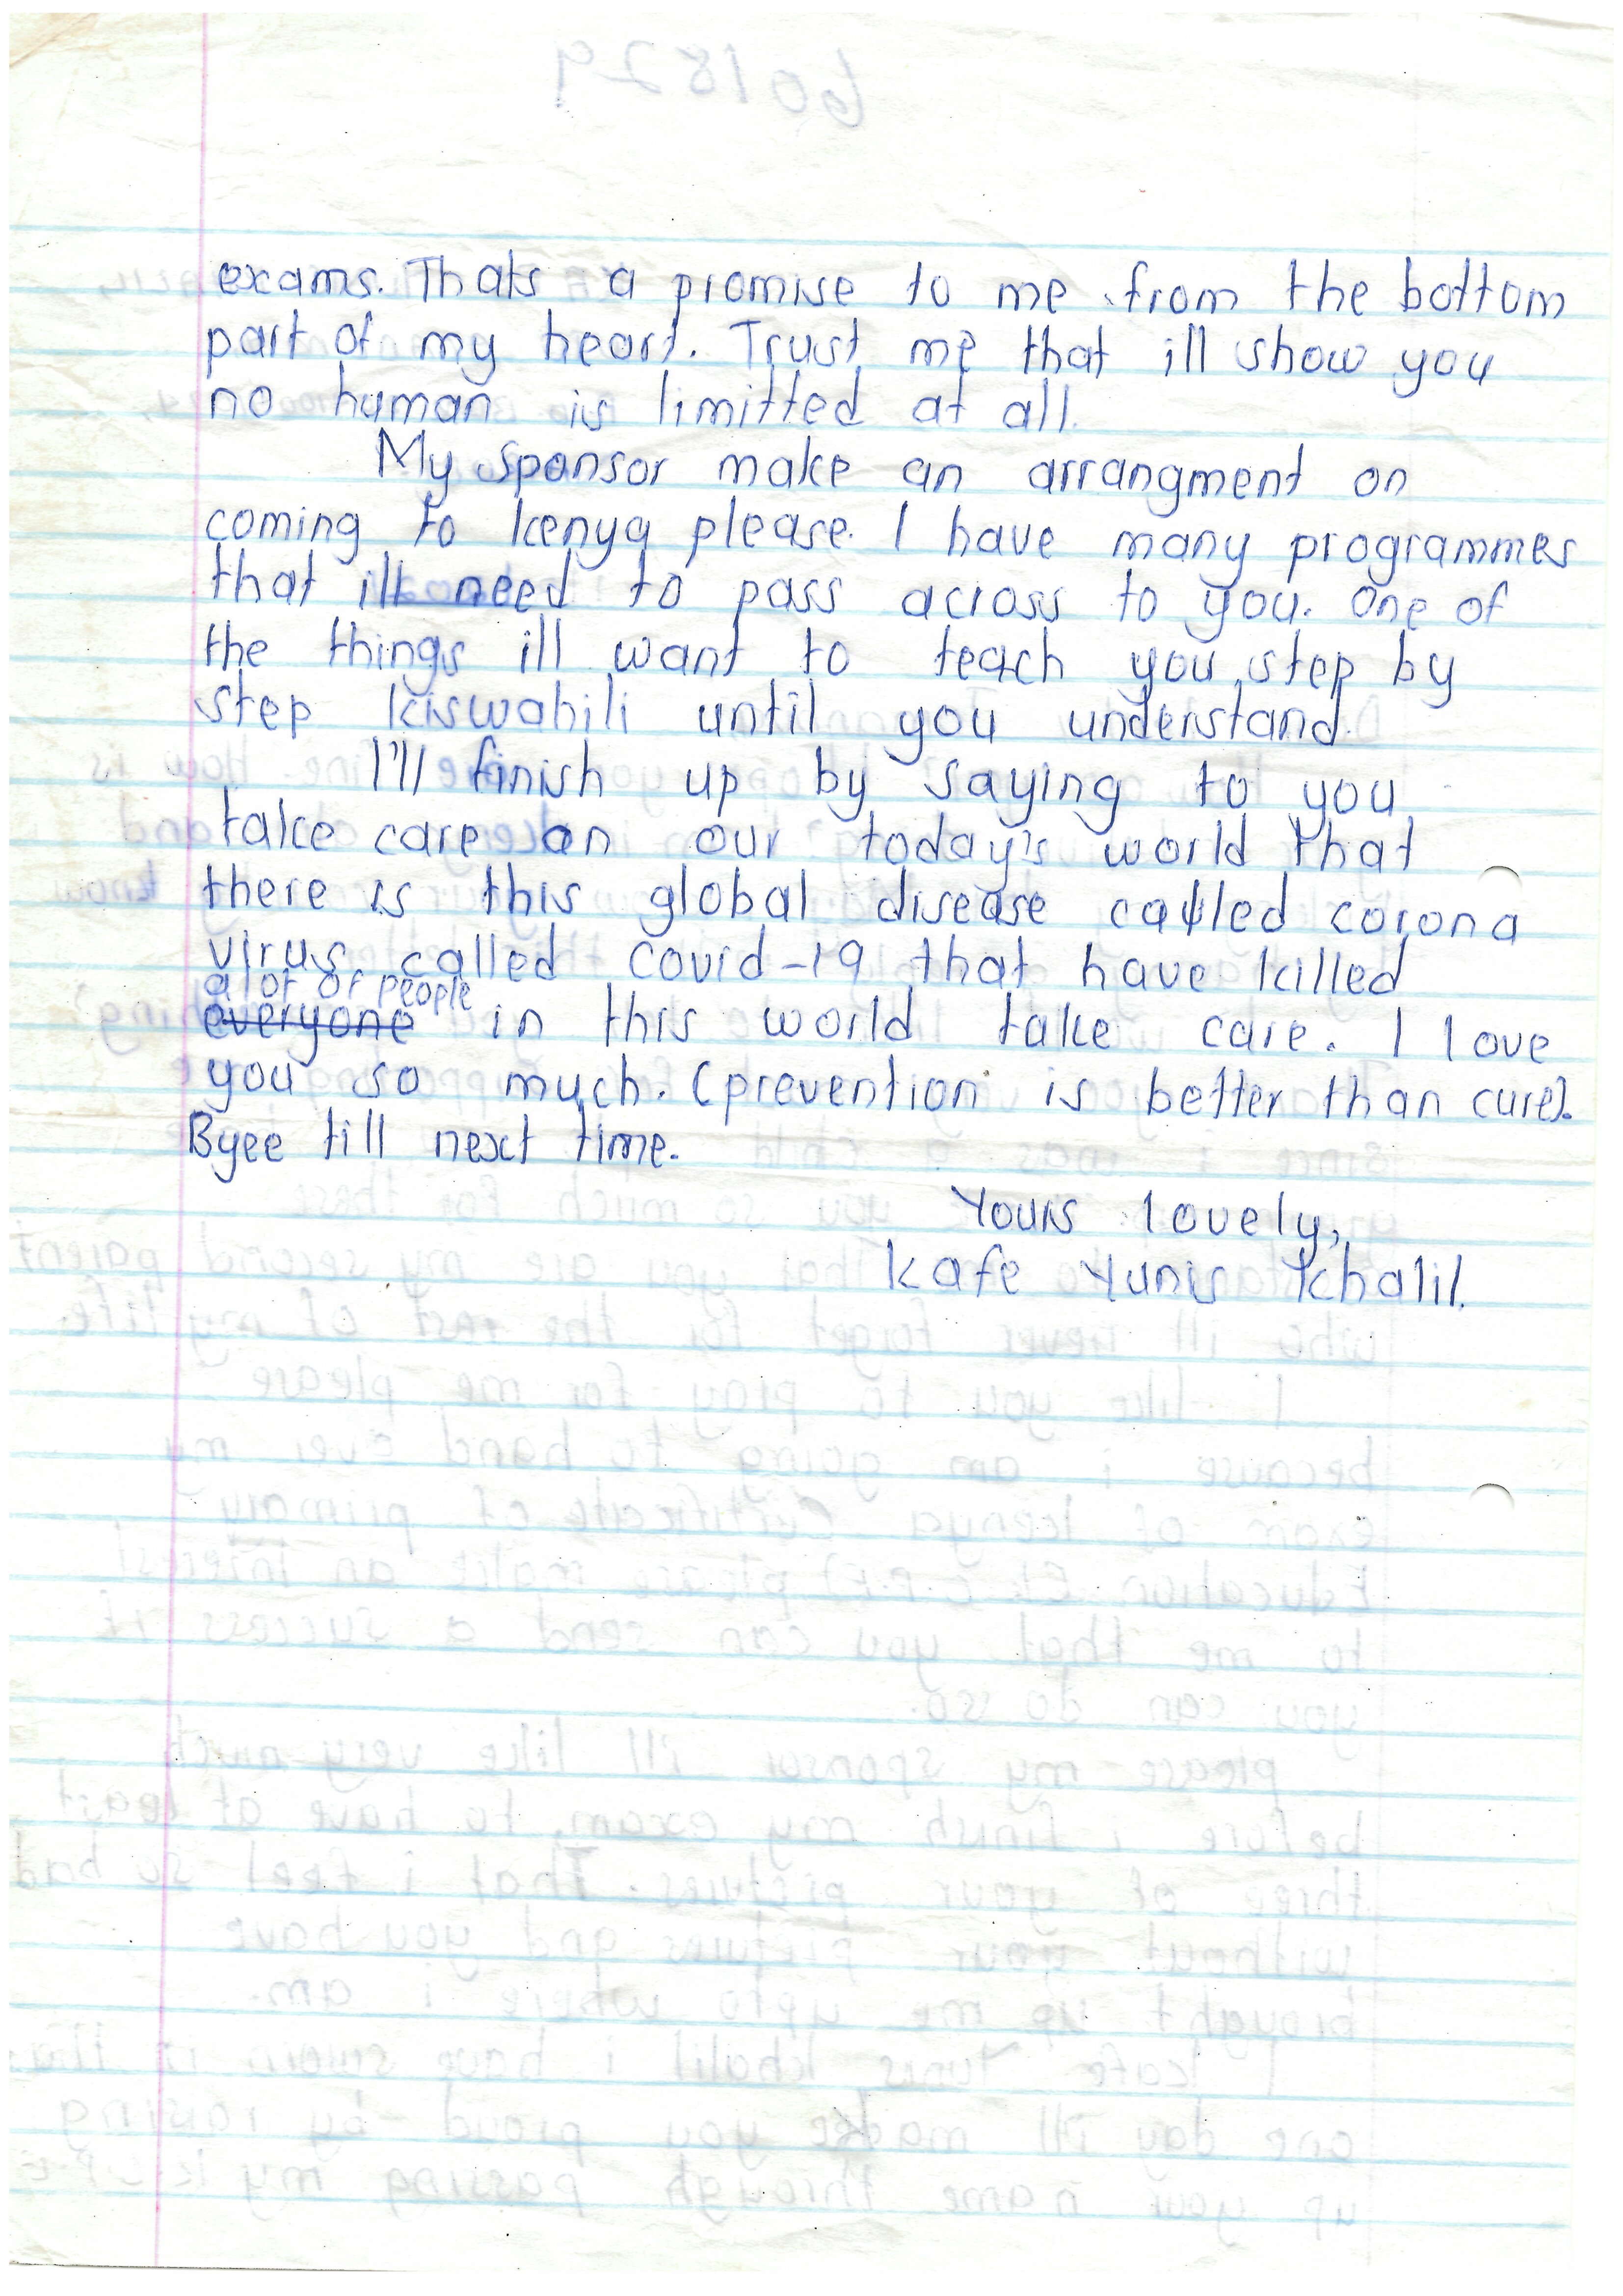 exams. Thats a promise to me from the bottom
part of my heart. Trust me that ill show you
no human is limitted at all.
My sponsor make an arrangment on
coming to kenya please. I have many programmes
that ill need to pass across to you. One of
the things ill want to teach you step by
step kiswahili until you understand.
I'll finish up by saying to you
take care on our today's world that
there is this global disease called corona
virus called covid-19 that have killed
a lot of people
everyone in this world take care. I love
you so much. (prevention is better than cure).
Byee till next time.
Yours lovely,
Kafe Yunis Khalil.